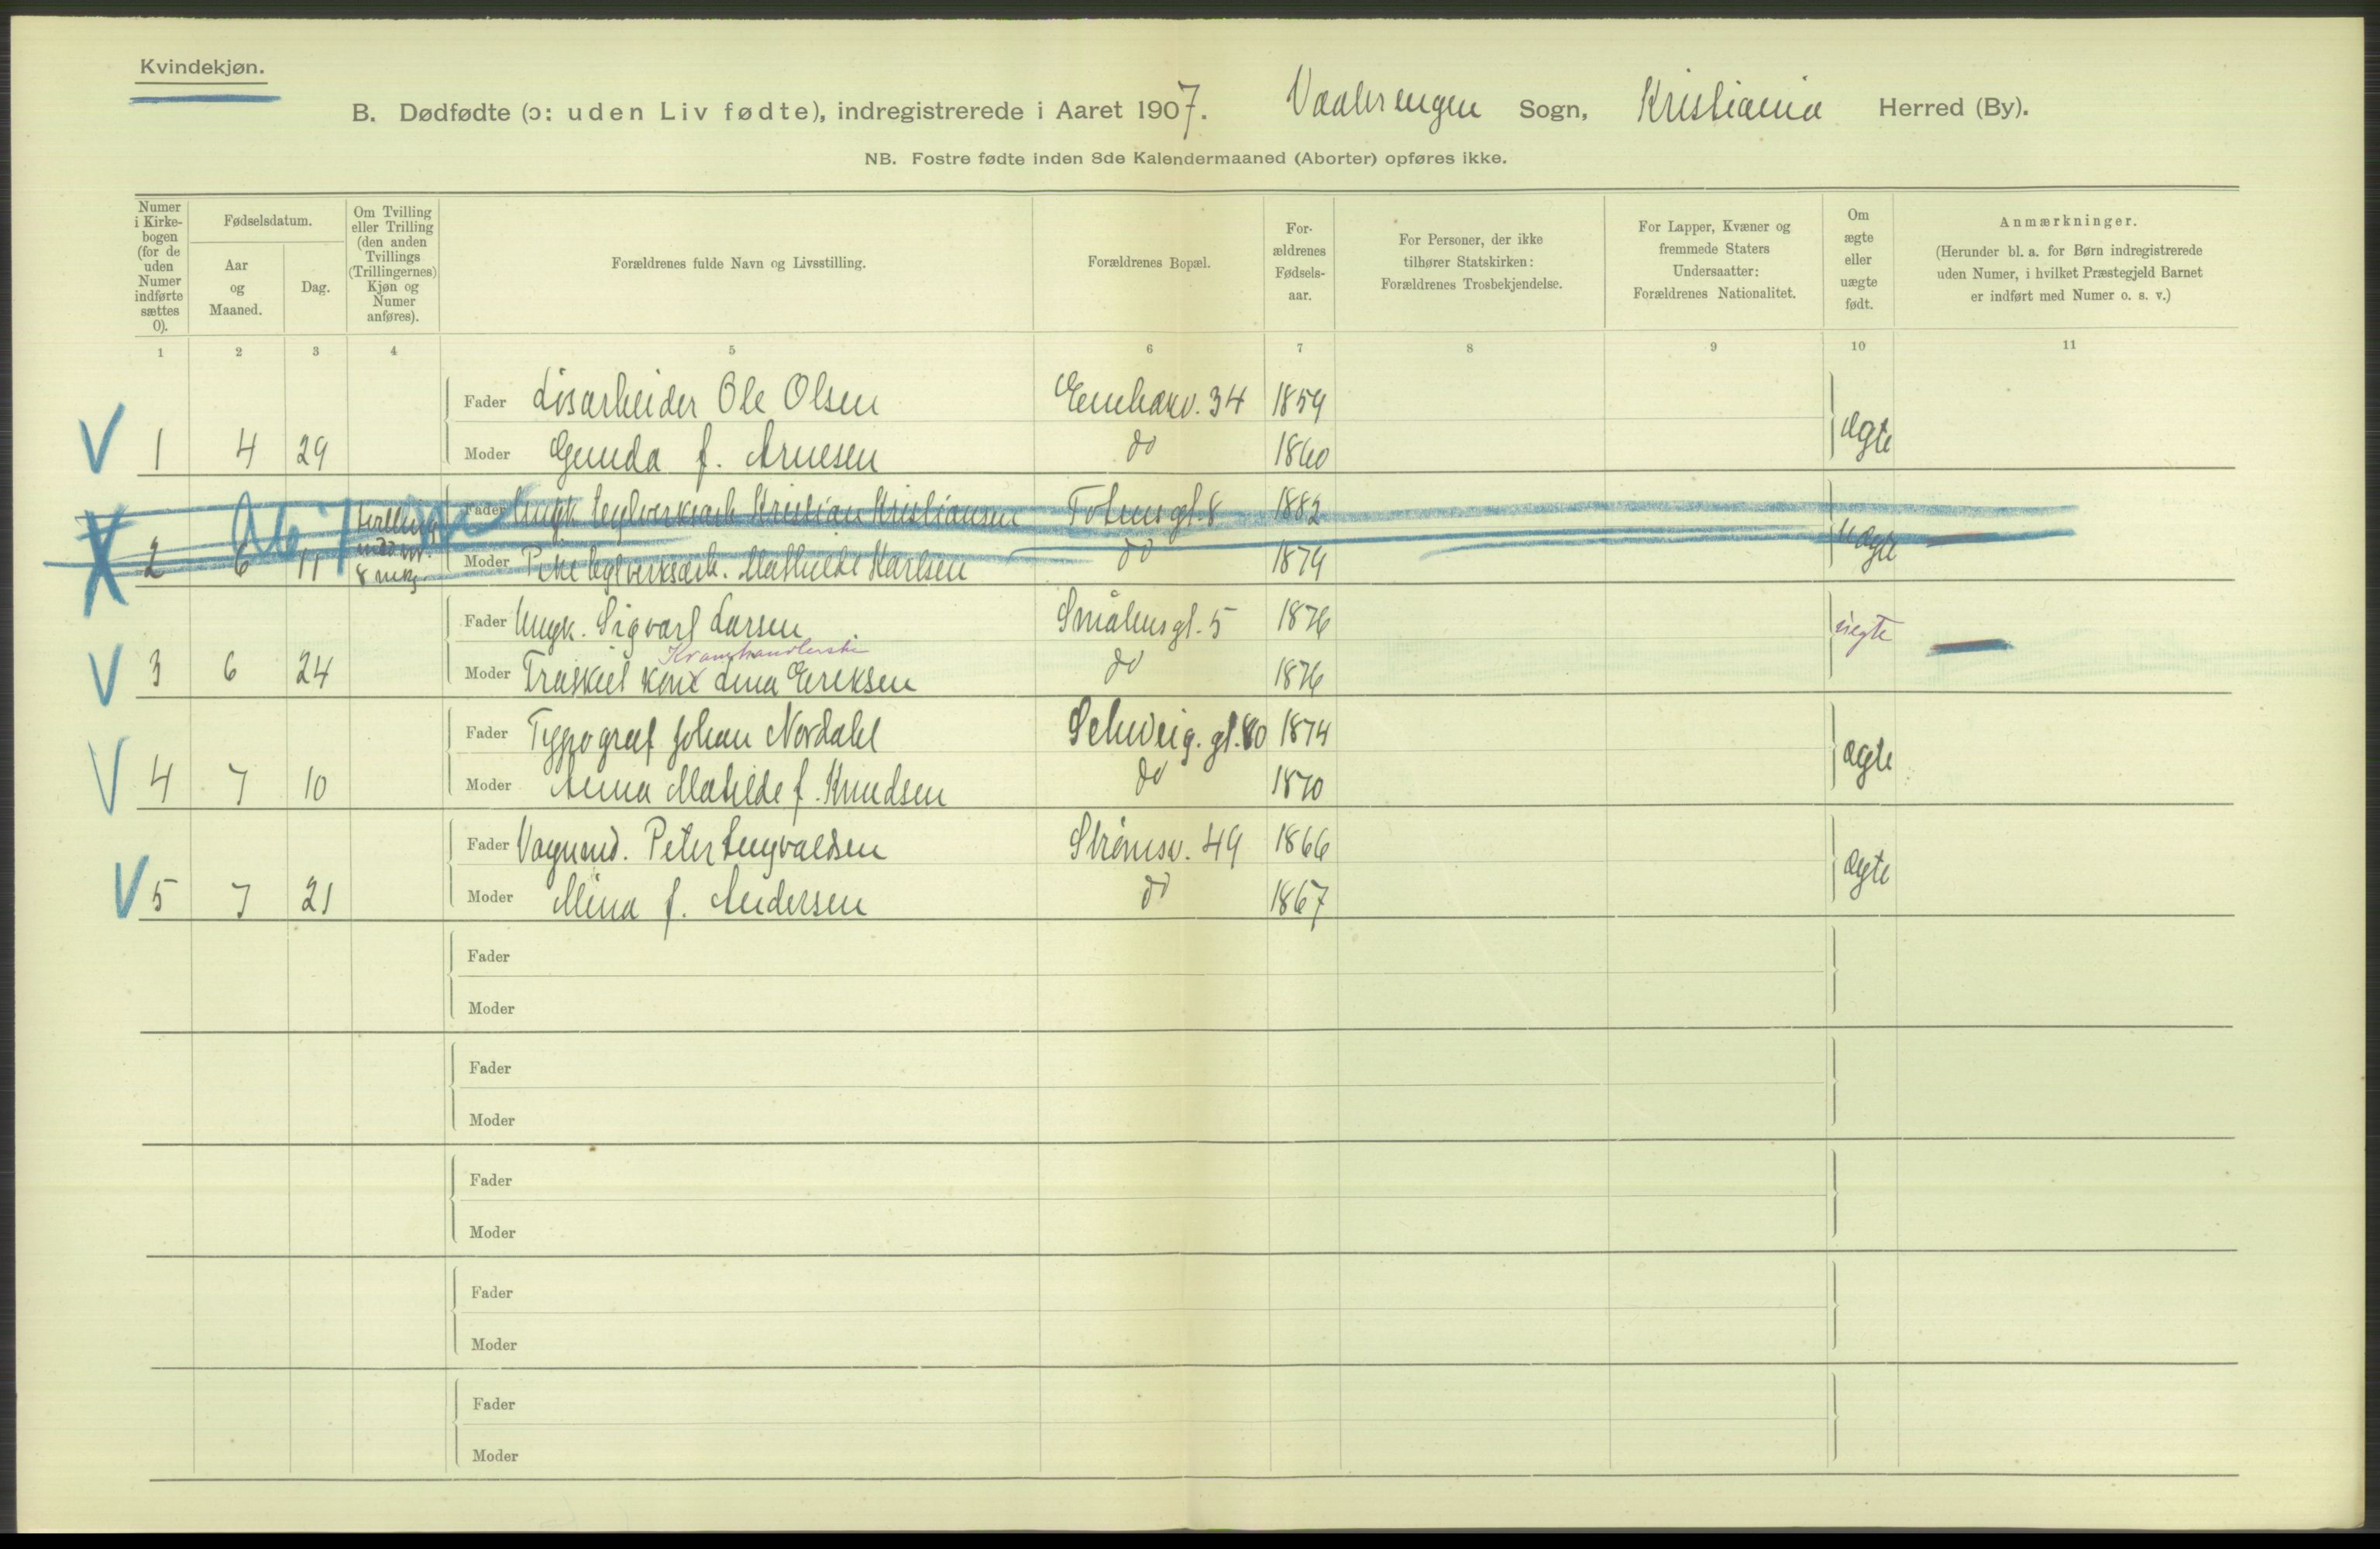 Kvindekjøn.
B. Dødfødte (ɔ: uden Liv fødte), indregistrerede i Aaret 1907. Vaalerengen Sogn, Kristiania Herred (By).
NB. Fostre fødte inden 8de Kalendermaaned (Aborter) opføres ikke.
Numer i Kirkebogen (for de uden Numer indførte sættes 0).
Fødselsdatum.
Aar og Maaned.
Dag.
Om Tvilling eller Trilling (den anden Tvillings (Trillingernes) Kjøn og Numer anføres).
Forældrenes fulde Navn og Livsstilling.
Forældrenes Bopæl.
For-ældrenes Fødsels-aar.
For Personer, der ikke tilhører Statskirken: Forældrenes Trosbekjendelse.
For Lapper, Kvæner og fremmede Staters Undersaatter: Forældrenes Nationalitet.
Om ægte eller uægte født.
Anmærkninger.
(Herunder bl. a. for Børn indregistrerede uden Numer, i hvilket Præstegjeld Barnet er indført med Numer o. s. v.)
1 2 3 4 5 6 7 8 9 10 11
Fader Løsarbeider Ole Olsen 34 1859
V 1 4 29 Moder Gunda f. Arnesen do 1860 ægte
Fader Ungk. Kristian Kristiansen Totensgt. 8 1882
2 6 11 Moder Pike Mathilde Karlsen do 1879 uægte
Fader Ungk. Sigvart Larsen Smålensgt. 5 1876 uegte
Kramhandlerske
V 3 6 24 Moder Fraskilt kone Lina Eriksen do 1876
Fader Typograf Johan Nordahl Schweig. gt. 80 1874
V 4 7 10 Moder Anna Matilde f. Knudsen do 1870 ægte
Fader Vognmd. Peter Lengvaldsen Strømsv. 49 1866
V 5 7 21 Moder Mina f. Andersen do 1867 ægte
Fader
Moder
Fader
Moder
Fader
Moder
Fader
Moder
Fader
Moder